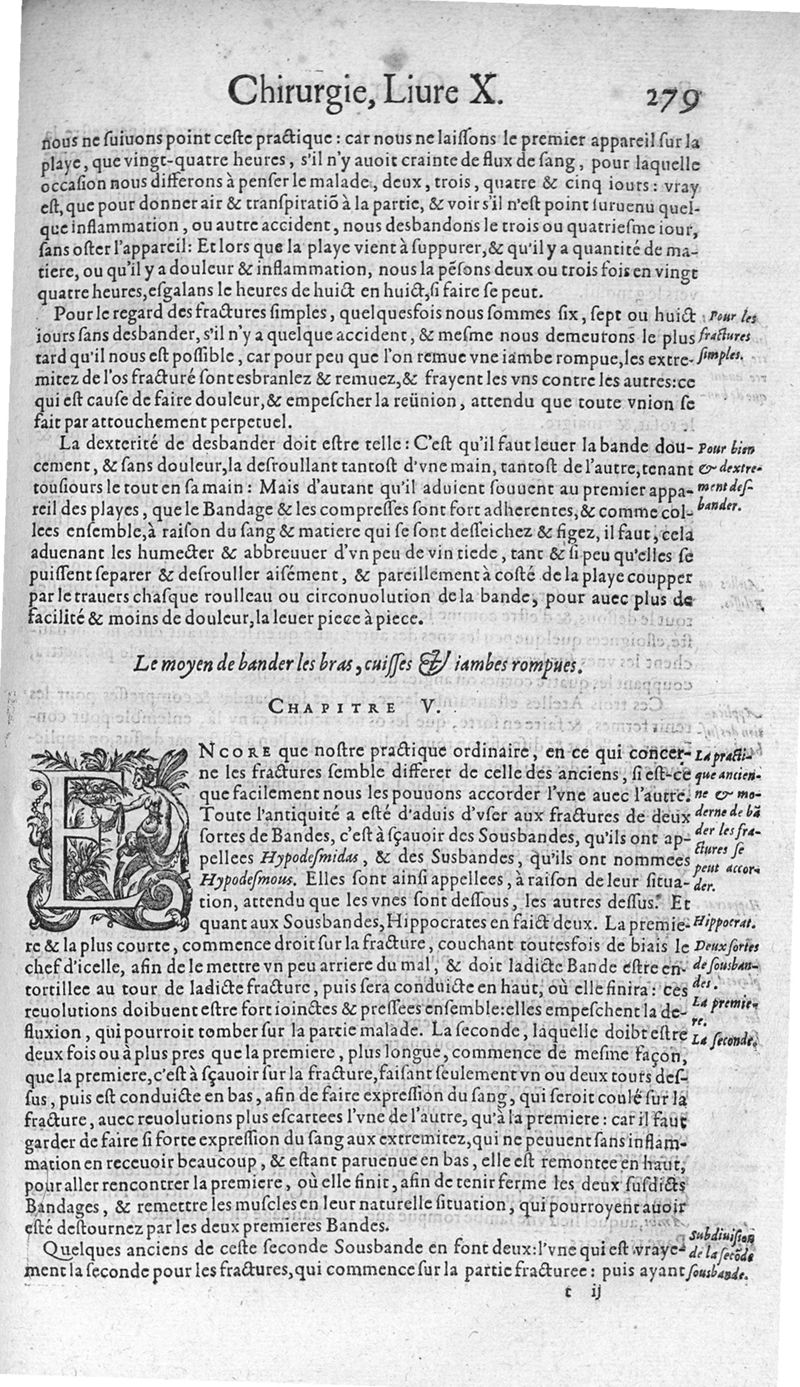 Chirurgie, Liure X. 279
nous ne suiuons point ceste practique : car nous ne laiſſons le premier appareil ſur la
playe, que vingt-quatre heures, s'il n'y auoit crainte de flux de ſang, pour laquelle
occaſion nous differons à penſer le malade, deux, trois, quatre & cinq iours : vray
eſt, que pour donner air & tranſpiratiõ à la partie, & voir s'il n'eſt point ſuruenu quel-
que inflammation, ou autre accident, nous desbandons le trois ou quatrieſme iour,
ſans oſter l'appareil: Et lors que la playe vient à ſuppurer, & qu'il y a quantité de ma-
tiere, ou qu'il y a douleur & inflammation, nous la pẽſons deux ou trois fois en vingt
quatre heures, eſgalans le heures de huict en huict, ſi faire ſe peut.
Pour le regard des fractures ſimples, quelquesfois nous ſommes ſix, ſept ou huict
Pour les
iours ſans desbander, s'il n'y a quelque accident, & meſme nous demeurons le plus
fractures
tard qu'il nous eſt poſſible, car pour peu que l'on remue vne iambe rompue, les extre-
ſimples.
mitez de l'os fracturé ſont esbranlez & remuez, & frayent les vns contre les autres: ce
qui eſt cauſe de faire douleur, & empeſcher la reünion, attendu que toute vnion ſe
fait par attouchement perpetuel.
La dexterité de desbander doit eſtre telle : C'eſt qu'il faut leuer la bande dou-
Pour bien
cement, & ſans douleur, la deſroullant tantoſt d'vne main, tantoſt de l'autre, tenant
& dextre-
touſiours le tout en ſa main : Mais d'autant qu'il aduient ſouuent au premier appa-
ment deſ-
reil des playes, que le Bandage & les compreſſes ſont fort adherentes, & comme col-
bander.
lees enſemble, à raiſon du ſang & matiere qui ſe ſont deſſeichez & figez, il faut, cela
aduenant les humecter & abbreuuer d'vn peu de vin tiede, tant & ſi peu qu'elles ſe
puiſſent ſeparer & deſrouller aiſément, & pareillement à coſté de la playe coupper
par le trauers chaſque roulleau ou circonuolution de la bande, pour auec plus de
facilité & moins de douleur, la leuer piece à piece.
Le moyen de bander les bras, cuiſſes & iambes rompues.
CHAPITRE V.
ENCORE que noſtre practique ordinaire, en ce qui concer-
La practi-
ne les fractures ſemble differer de celle des anciens, ſi eſt-ce
que ancien-
que facilement nous les pouuons accorder l'vne auec l'autre.
ne & mo-
Toute l'antiquité a eſté d'aduis d'vſer aux fractures de deux
derne de bã
ſortes de Bandes, c'eſt à ſçauoir des Sousbandes, qu'ils ont ap-
der les fra-
pellees Hypodeſmidas, & des Susbandes, qu'ils ont nommees
ctures ſe
peut accor-
Hypodeſmous. Elles ſont ainſi appellees, à raiſon de leur ſitua-
der.
tion, attendu que les vnes ſont deſſous, les autres deſſus. Et
quant aux Sousbandes, Hippocrates en faict deux. La premie-
Hippocrat.
re & la plus courte, commence droit ſur la fracture, couchant toutesfois de biais le
Deux ſortes
chef d'icelle, afin de le mettre vn peu arriere du mal, & doit ladicte Bande eſtre en-
de ſousban-
tortillee au tour de ladicte fracture, puis ſera conduicte en haut, où elle finira : ces
des.
reuolutions doibuent eſtre fort ioinctes & preſſees enſemble: elles empeſchent la de-
La premie-
re.
fluxion, qui pourroit tomber ſur la partie malade. La ſeconde, laquelle doibt eſtre
La ſeconde.
deux fois ou à plus pres que la premiere, plus longue, commence de meſme façon,
que la premiere, c'eſt à ſçauoir ſur la fracture, faiſant ſeulement vn ou deux tours deſ-
ſus, puis eſt conduicte en bas, afin de faire expreſſion du ſang, qui ſeroit coulé ſur la
fracture, auec reuolutions plus eſcartees l'vne de l'autre, qu'à la premiere : car il faut
garder de faire ſi forte expreſſion du ſang aux extremitez, qui ne peuuent ſans inflam-
mation en receuoir beaucoup, & eſtant paruenue en bas, elle eſt remontee en haut,
pour aller rencontrer la premiere, où elle finit, afin de tenir ferme les deux ſuſdicts
Bandages, & remettre les muſcles en leur naturelle ſituation, qui pourroyent auoir
eſté deſtournez par les deux premieres Bandes.
Quelques anciens de ceſte ſeconde Sousbande en font deux: l'vne qui eſt vraye-
Subdiuiſion
de la ſecõde
ment la ſeconde pour les fractures, qui commence ſur la partie fracturee : puis ayant
ſousbande.
t ij